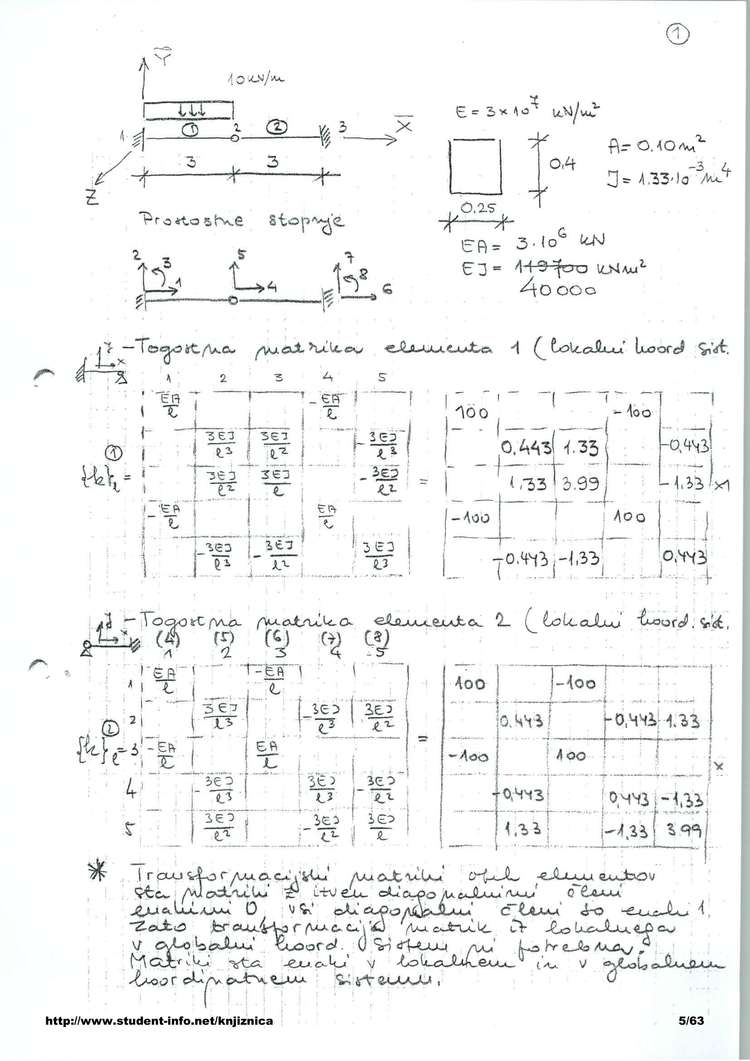 1
Y
10 kN/m
1 ① 2 ② 3 X
3 3
Z
E = 3×10⁷ kN/m²
0,4
0.25
A = 0.10 m²
J = 1.33·10⁻³ m⁴
Prostostne stopnje
EA = 3·10⁶ kN
EJ = 119700 kNm²
40000
2 3 1 5 4 7 8 6
- Togostna matrika elementa 1 (lokalni koord sist.
1 2 3 4 5
EA/l -EA/l
3EJ/l³ 3EJ/l² -3EJ/l³
{k}①l = 3EJ/l² 3EJ/l -3EJ/l² =
-EA/l EA/l
-3EJ/l³ -3EJ/l² 3EJ/l³
100 -100
0.443 1.33 -0,443
1,33 3.99 -1,33
-100 100
-0.443 -1,33 0,443
- Togostna matrika elementa 2 (lokalni koord. sist.
(4) (5) (6) (7) (8)
1 2 3 4 5
1 EA/l -EA/l
2 3EJ/l³ -3EJ/l³ 3EJ/l²
{k}②l = 3 -EA/l EA/l =
4 -3EJ/l³ 3EJ/l³ -3EJ/l²
5 3EJ/l² -3EJ/l² 3EJ/l
100 -100
0.443 -0,443 1.33
-100 100
-0,443 0,443 -1,33
1,33 -1,33 3.99
* Transformacijski matriki obeh elementov
sta matriki z izven diagonalnimi členi
enakimi 0 vsi diagonalni členi so enaki 1.
Zato transformacija matrik iz lokalnega
v globalni koord. sistem ni potrebna.
Matriki sta enaki v lokalnem in v globalnem
koordinatnem sistemu.
http://www.student-info.net/knjiznica
5/63